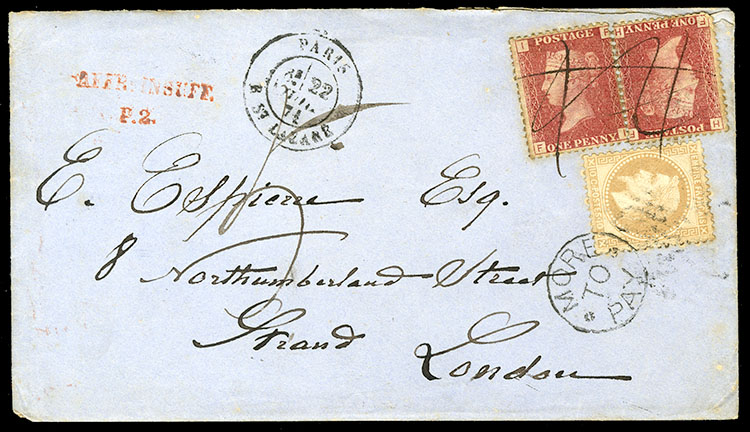 AFFR. INSUFF.
P.2.
PARIS
22
71
R. ST LAZARE
I
POSTAGE
ONE PENNY
F
F
H
POSTAGE
ONE PENNY
H
F
E. Espierre Esq.
8 Northumberland Street
Strand London
MORE
TO
PAY